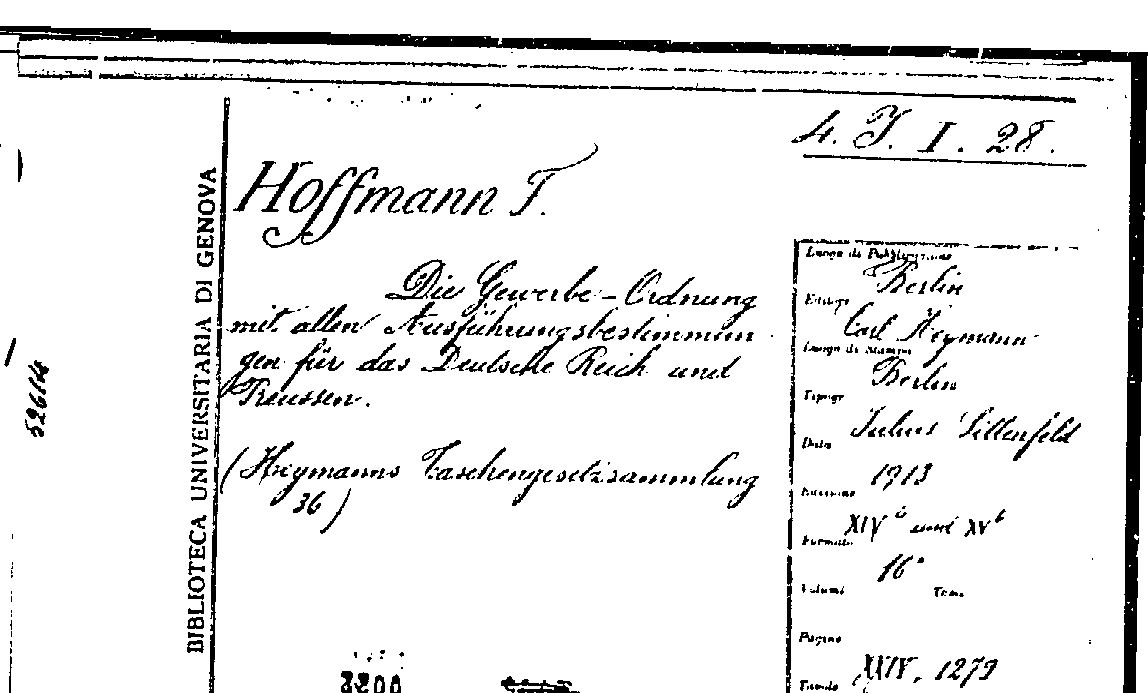 4. J. I. 28.
Hoffmann F.
Die Gewerbe-Ordnung
mit allen Ausführungsbestimmun
gen für das Deutsche Reich und
Preussen.
(Heymanns Taschengesetzsammlung
36)
BIBLIOTECA UNIVERSITARIA DI GENOVA
52614
Luogo di Pubblicazione
Berlin
Carl Heymann
Luogo di Stampa
Berlin
Tipogr
Julius Sittenfeld
Data
1913
Edizione
XIVᵃ und XVᵇ
Formato
16°
Volumi Tomi
Pagine
XXIV, 1279